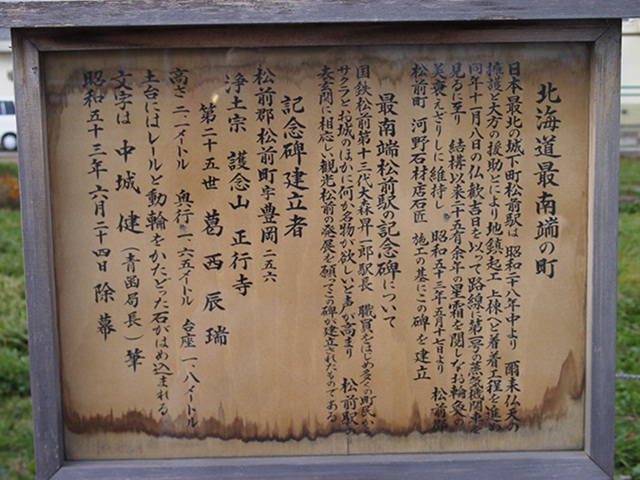 北海道最南端の町
日本最北の城下町松前駅は 昭和二十八年中より 爾来仏天の
擁護と大方の援助とにより地鎮 起工 上棟 と着着工程を進め
同年十一月八日の仏歓吉日を以って路線に第一号の蒸気機関車を
見るに至り 結構以来二十五有余年の星霜を閲しなお輪奐の
美衰えざりしに維持し 昭和五十三年五月十七日より 松前郡
松前町 河野石材店石匠 施工の基にこの碑を建立
最南端松前駅の記念碑について
国鉄松前第十三代大森昇一郎駅長 職員をはじめ多くの町民から
サクラとお城のほかに何か名物が欲しいと声が高まり 松前駅の
表玄関に相応しい観光松前の発展を願ってこの碑が建立されたものである
記念碑建立者
松前郡松前町字豊岡二五六
浄土宗 護念山 正行寺
第二十五世 葛西辰瑞
高さ 二、一メートル 奥行 一、六五メートル 台座 一、八メートル
土台にはレールと動輪をかたどった石がはめ込まれる
文字は 中城 健（青函局長）筆
昭和五十三年六月二十四日 除幕